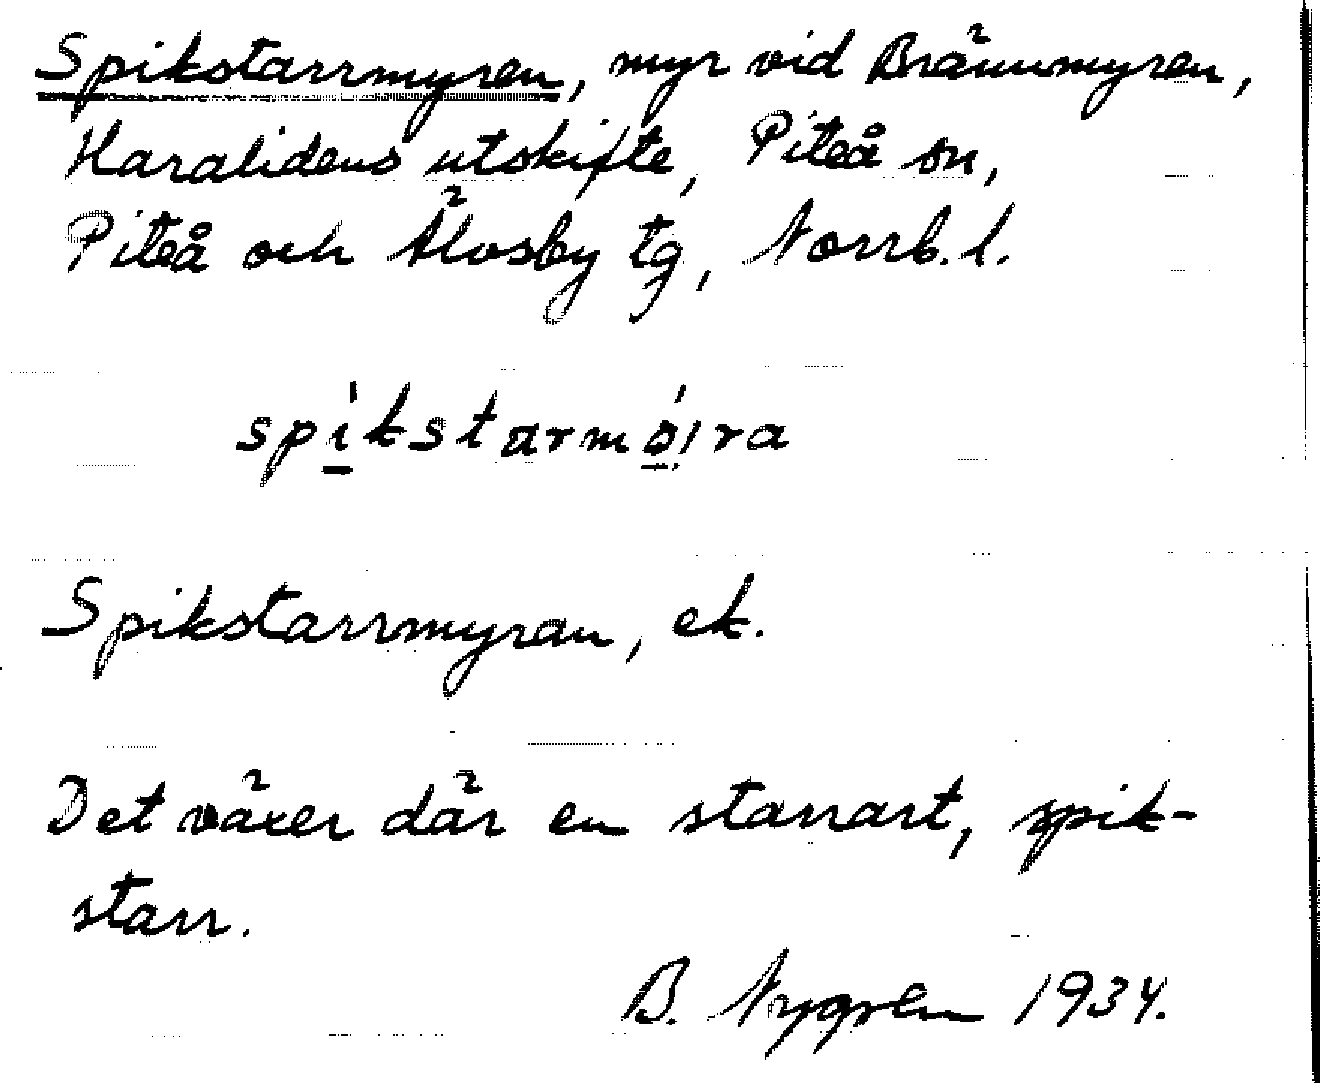 Spikstarrmyren, myr vid Brännmyren,
Haralidens utskifte, Piteå sn,
Piteå och Älvsby tg, Norrb. l.
spíkstarmó̤ira
Spikstarrmyran, ek.
Det växer där en starrart, spik-
starr.
B. Nygren 1934.